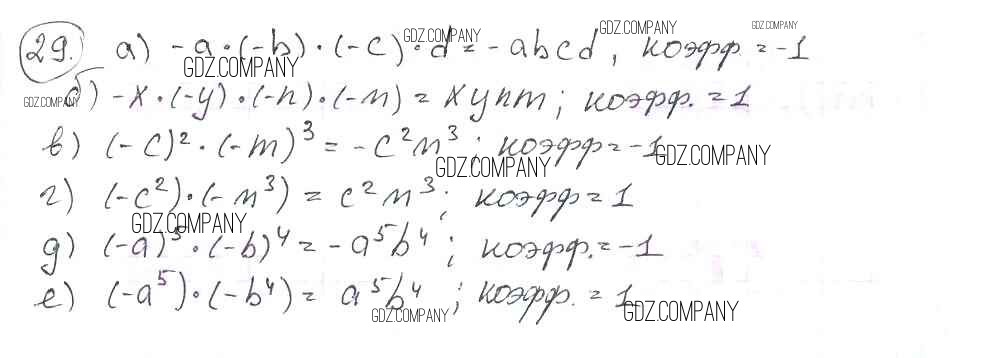 29. а) -a·(-b)·(-c)·d = -abcd, коэфф. = -1
б) -x·(-y)·(-n)·(-m) = xynm; коэфф. = 1
в) (-c)²·(-m)³ = -c²m³; коэфф = -1
г) (-c²)·(-m³) = c²m³; коэфф = 1
д) (-a)⁵·(-b)⁴ = -a⁵b⁴; коэфф. = -1
е) (-a⁵)·(-b⁴) = a⁵b⁴; коэфф. = 1
GDZ.COMPANY
GDZ.COMPANY
GDZ.COMPANY
GDZ.COMPANY
GDZ.COMPANY
GDZ.COMPANY
GDZ.COMPANY
GDZ.COMPANY
GDZ.COMPANY
GDZ.COMPANY